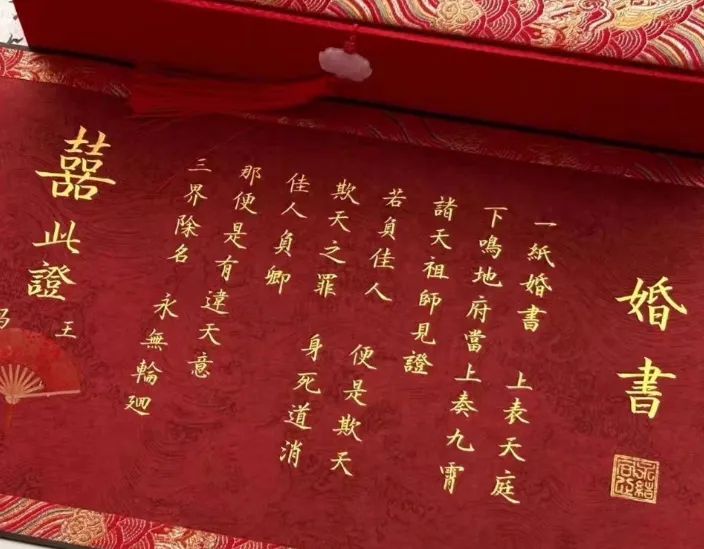 婚書
一紙婚書 上表天庭
下鳴地府當上奏九霄
諸天祖師見證
若負佳人 便是欺天
欺天之罪 身死道消
佳人負卿
那便是有違天意
三界除名 永無輪廻
囍
此證
王
馮